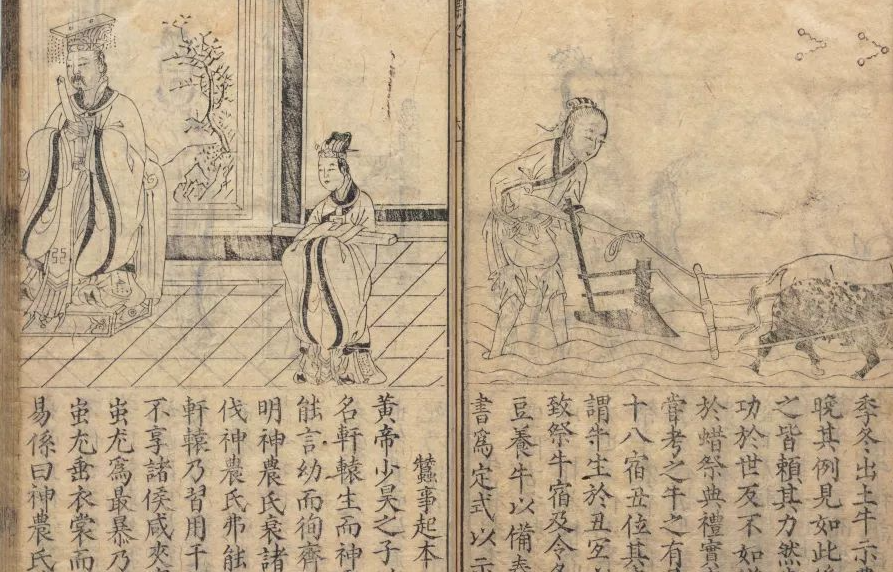 季冬出土牛示
晚其例見如此
之皆頼其力然
功於世反不如
於蜡祭典禮實
甞考之牛之有
十八宿丑位其
謂牛生於丑宜
致祭牛宿及令各
豆養牛以備春
書爲定式以示
蠶事起本
黄帝少昊之子
名軒轅生而神
能言幼而徇齊
明神農氏衰諸
伐神農氏弗能
軒轅乃習用干
不享諸侯咸來
蚩尤爲最暴乃
蚩尤垂衣裳而
易係曰神農氏